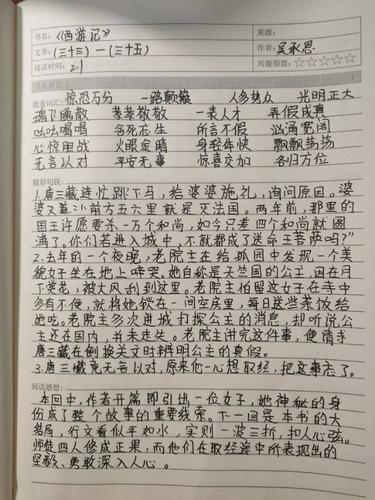 书名:《西游记》
来源:
文章:(三十三)—(三十五)
作者:吴承恩
阅读时间:2.1
兴趣指数:☆☆☆☆☆
优美词汇:惊恐万分 一路颠簸 人多势众 光明正大
魂飞魄散 恭恭敬敬 一表人才 弄假成真
吆吆喝喝 舍死忘生 所言不假 汹涌宽阔
心惊胆战 火眼金睛 身轻体快 飘飘荡荡
无言以对 平安无事 惊喜交加 各归方位
精彩句段:
1.唐三藏连忙跳下马,给婆婆施礼,询问原因。婆
婆又道:“前方五六里就是灭法国。两年前,那里的
国王许愿要杀一万个和尚,如今只差四个和尚就圆
满了。你们若进入城中,不就都成了送命王菩萨吗?”
2.去年的一个夜晚,老院主在给孤园中发现一个美
貌女子坐在地上啼哭。她自称是天竺国的公主,因在月
下赏花,被大风刮到这里。老院主怕留这女子在寺中
多有不便,就将她锁在一间空房里,每日送些茶饭给
她吃。老院主多次进城打探公主的消息,却听说公
主还在国内,并未走失。老院主讲完这件事,便请求
唐三藏在倒换关文时辨明公主的真假。
3.唐三藏竟无言以对,原来他一心想取经,把这事忘了。
阅读感想:
本回中,作者开篇即引出一位女子,她神秘的身
份成了整个故事的重要线索。下一回是本书的大
结局,行文看似平如水,实则一波三折,扣人心弦。
师徒四人修成正果,而他们在取经途中所表现出的
坚毅、勇敢深入人心。